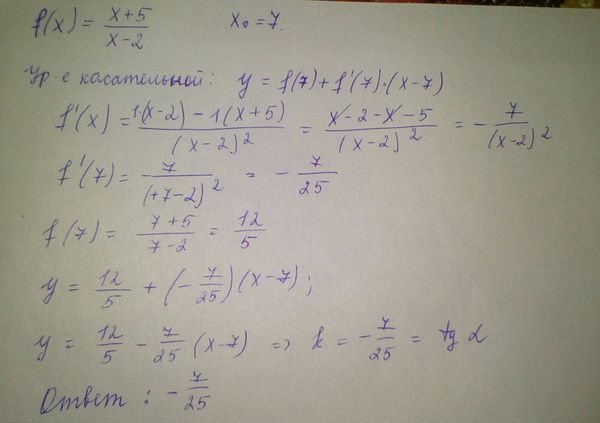 f(x) = \frac{x+5}{x-2}    x₀ = 7.
Ур-е касательной: y = f(7) + f'(7)·(x-7)
f'(x) = \frac{1·(x-2) - 1(x+5)}{(x-2)^2} = \frac{x-2-x-5}{(x-2)^2} = -\frac{7}{(x-2)^2}
f'(7) = -\frac{7}{(+7-2)^2} = -\frac{7}{25}
f(7) = \frac{7+5}{7-2} = \frac{12}{5}
y = \frac{12}{5} + (-\frac{7}{25})(x-7);
y = \frac{12}{5} - \frac{7}{25}(x-7) => k = -\frac{7}{25} = tg α
Ответ: -\frac{7}{25}